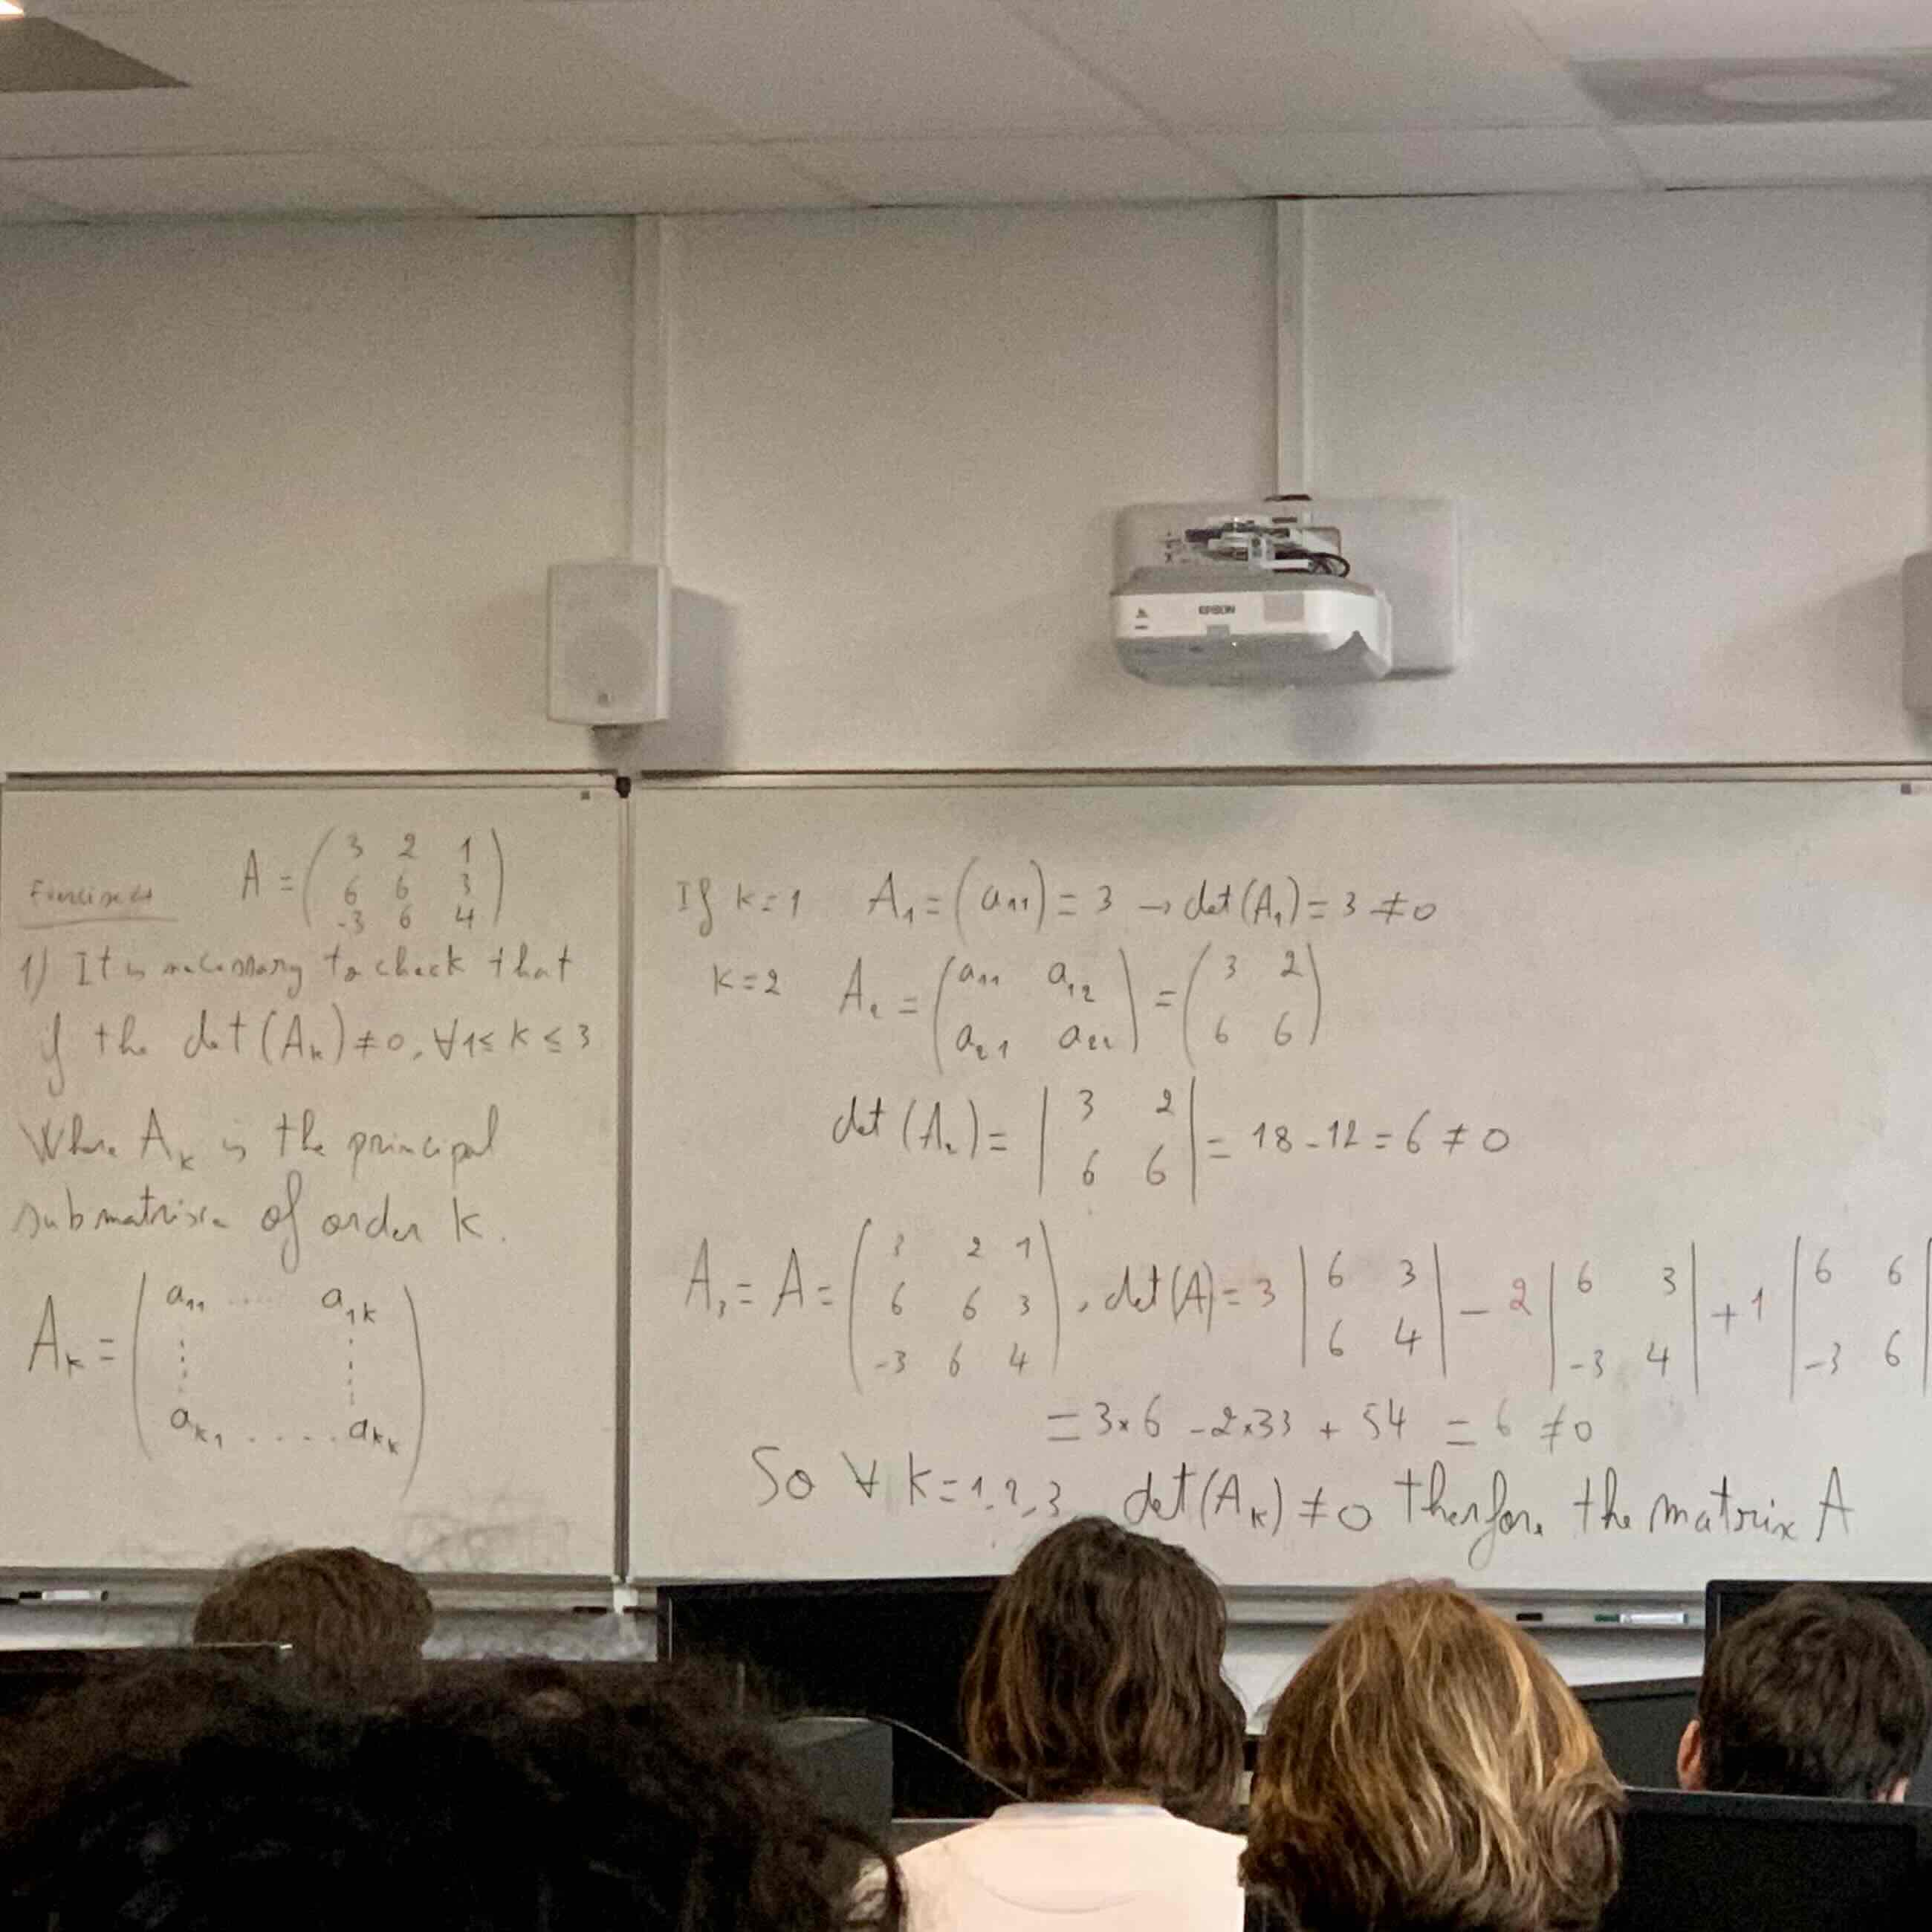 EPSON
A = ( 3 2 1
6 6 3
-3 6 4 )
1) It is necessary to check that
if the det(A_k) ≠ 0, ∀ 1 ≤ k ≤ 3
Where A_k is the principal
submatrix of order k.
A_k = ( a_11 ..... a_1k
⋮ ⋮
a_k1 ..... a_kk )
If k=1 A_1 = (a_11) = 3 → det(A_1) = 3 ≠ 0
k=2 A_2 = ( a_11 a_12
a_21 a_22 ) = ( 3 2
6 6 )
det(A_2) = | 3 2
6 6 | = 18 - 12 = 6 ≠ 0
A_3 = A = ( 3 2 1
6 6 3
-3 6 4 ), det(A) = 3 | 6 3
6 4 | - 2 | 6 3
-3 4 | + 1 | 6 6
-3 6 |
= 3×6 - 2×33 + 54 = 6 ≠ 0
So ∀ k=1,2,3 det(A_k) ≠ 0 therfore the matrix A